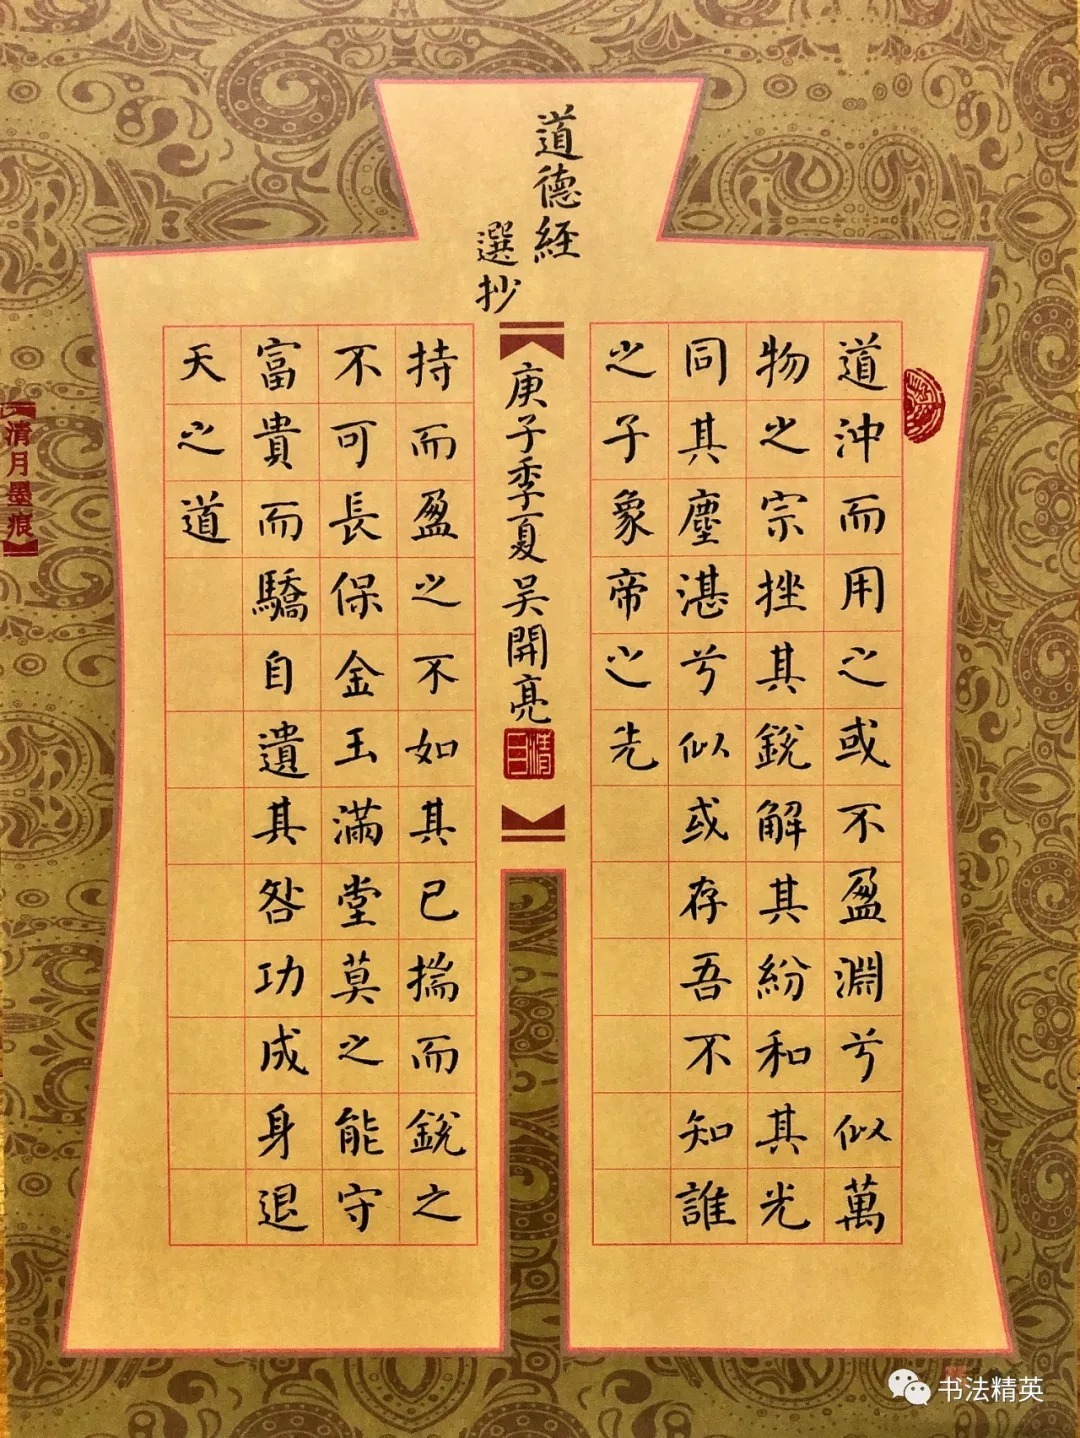 道德經
選抄
道沖而用之或不盈淵兮似萬
物之宗挫其銳解其紛和其光
同其塵湛兮似或存吾不知誰
之子象帝之先
庚子季夏吴開亮
持而盈之不如其已揣而銳之
不可長保金玉滿堂莫之能守
富貴而驕自遺其咎功成身退
天之道
清月墨痕
书法精英